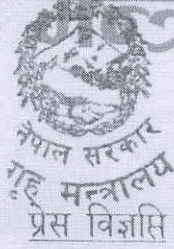 नेपाल सरकार
गृह मन्त्रालय
प्रेस विज्ञप्ति